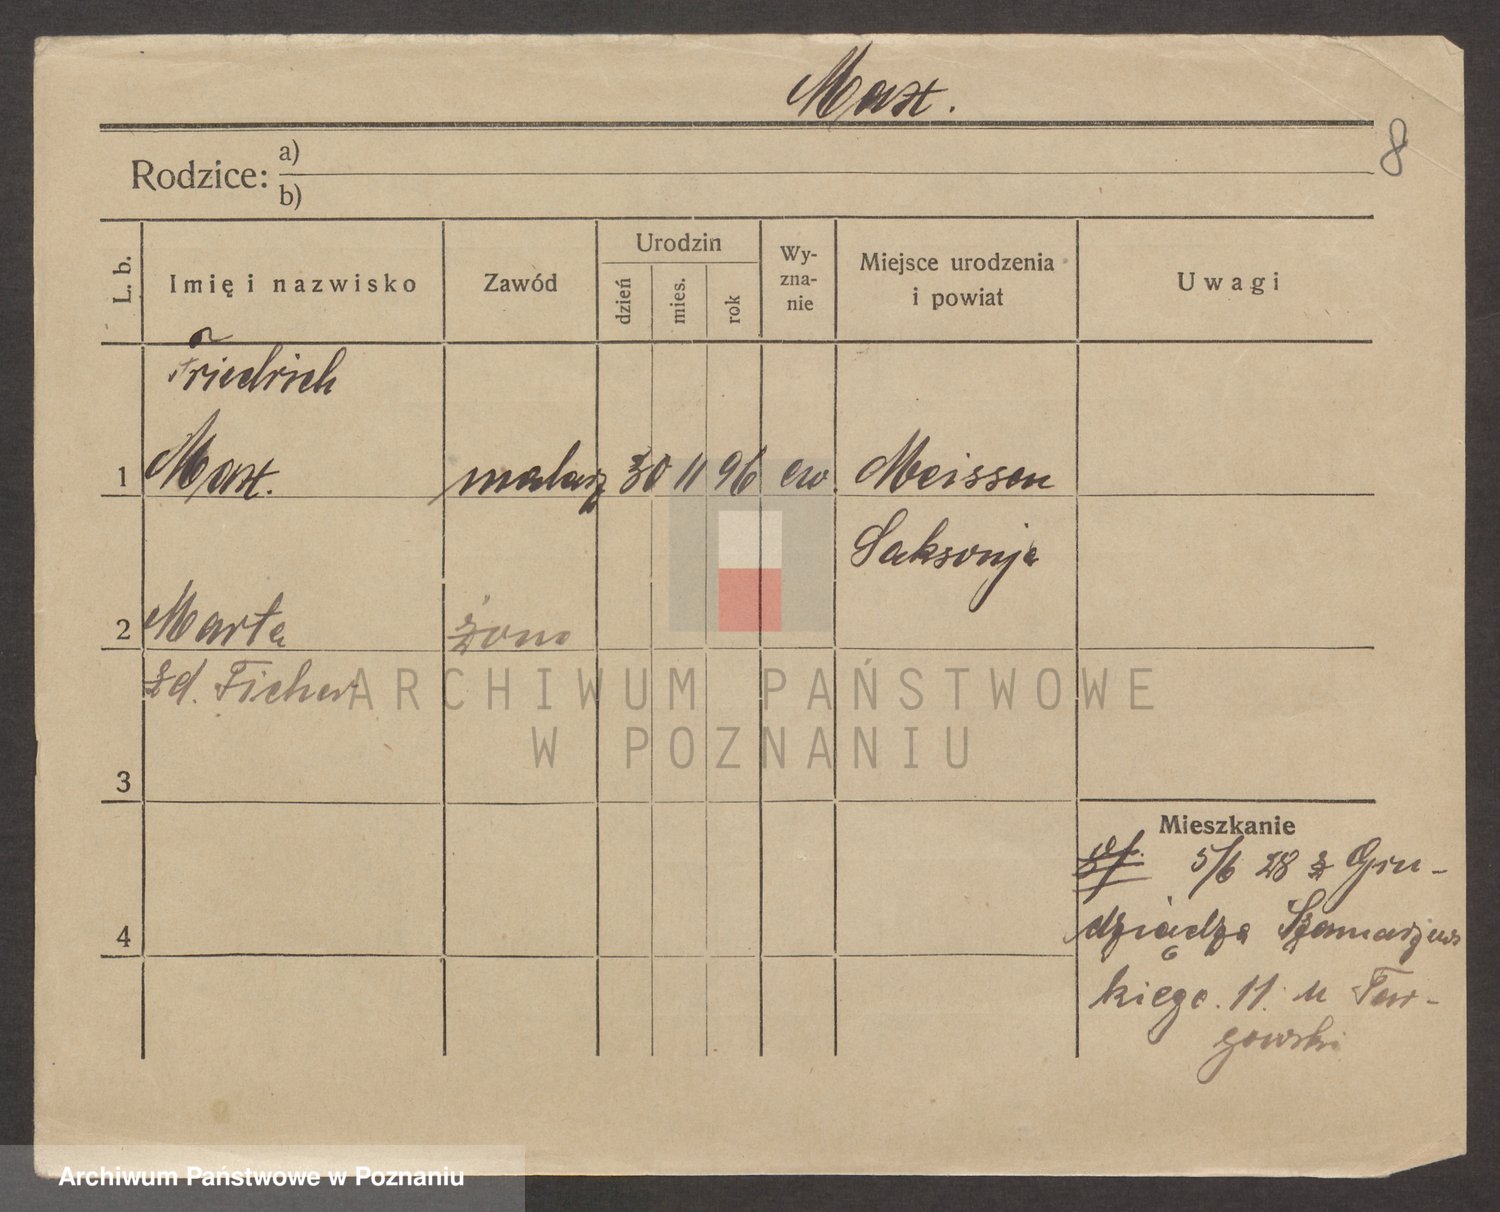 Max.
8
Rodzice:
a)
b)
L. b.
Imię i nazwisko
Zawód
Urodzin
dzień
mies.
rok
Wy-
zna-
nie
Miejsce urodzenia
i powiat
Uwagi
Friedrich
1 Max. malarz 30 11 96 ew. Meissen
Saksonja
2 Marta żona
zd. Ficher
3
4
Mieszkanie
5/6 28 z Gru-
dziądza Szamarzews
kiego. 11. u Tar-
gowski
ARCHIWUM PAŃSTWOWE
W POZNANIU
Archiwum Państwowe w Poznaniu